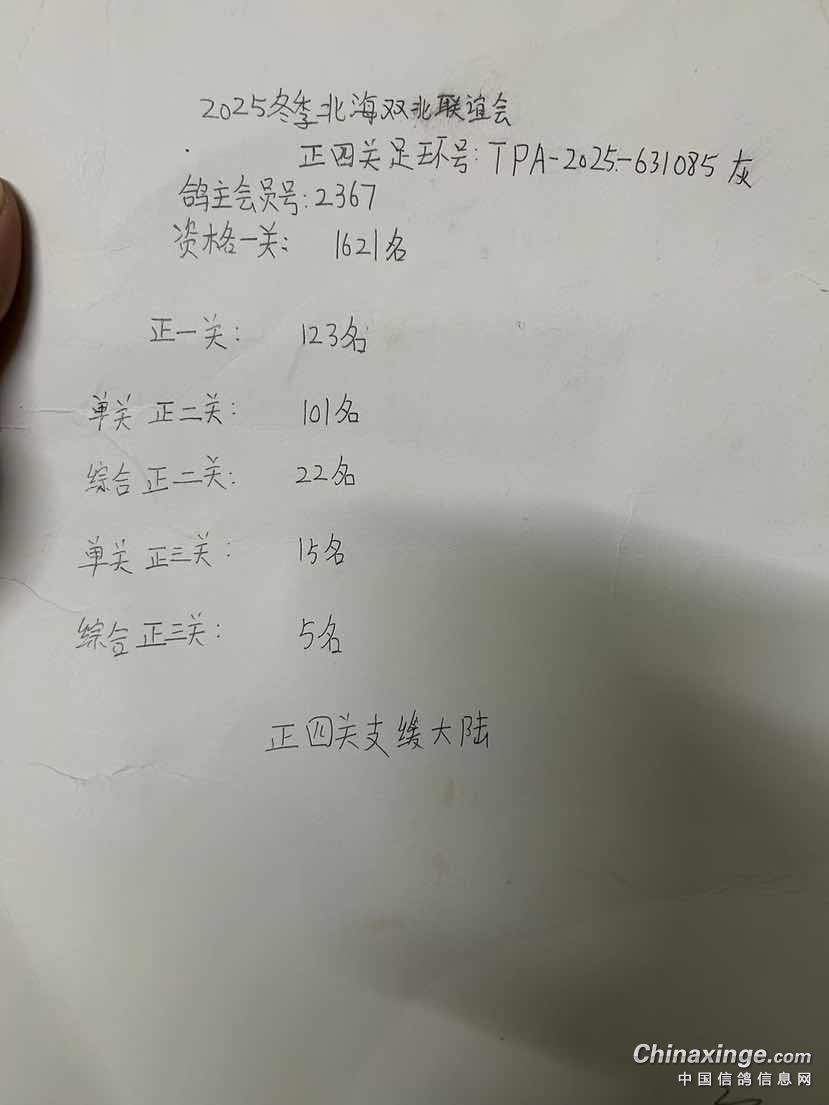 2025冬季北海双北联谊会
正四关足环号:TPA-2025-631085灰
鸽主会员号:2367
资格一关: 1621名
正一关: 123名
单关 正二关: 101名
综合 正二关: 22名
单关 正三关: 15名
综合 正三关: 5名
正四关支缓大陆
Chinaxinge.com
中国信鸽信息网